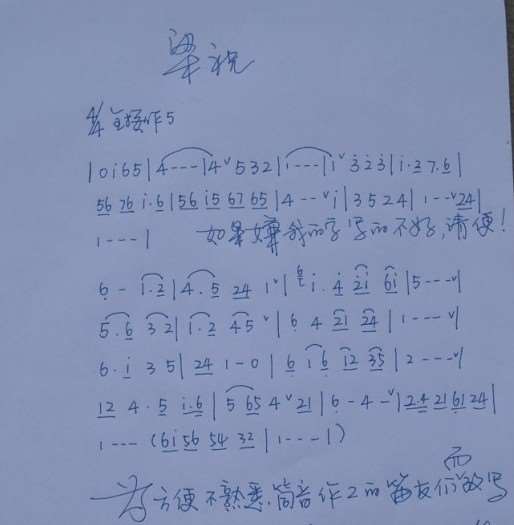 梁祝
4/4 全按作5
|0i65|4---|4ˇ532|1---|1ˇ323|i.376|
56 76 i.6|56 i5 67 65|4--ˇi|3524|1--ˇ24|
1---| 如果嫌我的字写的不好,请便!
6-1.2|4.5 24 1ˇ| i.4 2i 6i|5---ˇ|
5.6 32|1.2 45ˇ|6 4 21 24|1---ˇ|
6.i 35|24 1-0|6 16 12 35|2---ˇ|
12 4.5 i.6|5 65 4ˇ21|6-4-ˇ|24 21 61 24|
1---(6i 56 54 32|1---|)
为方便不熟悉筒音作2的笛友们而写